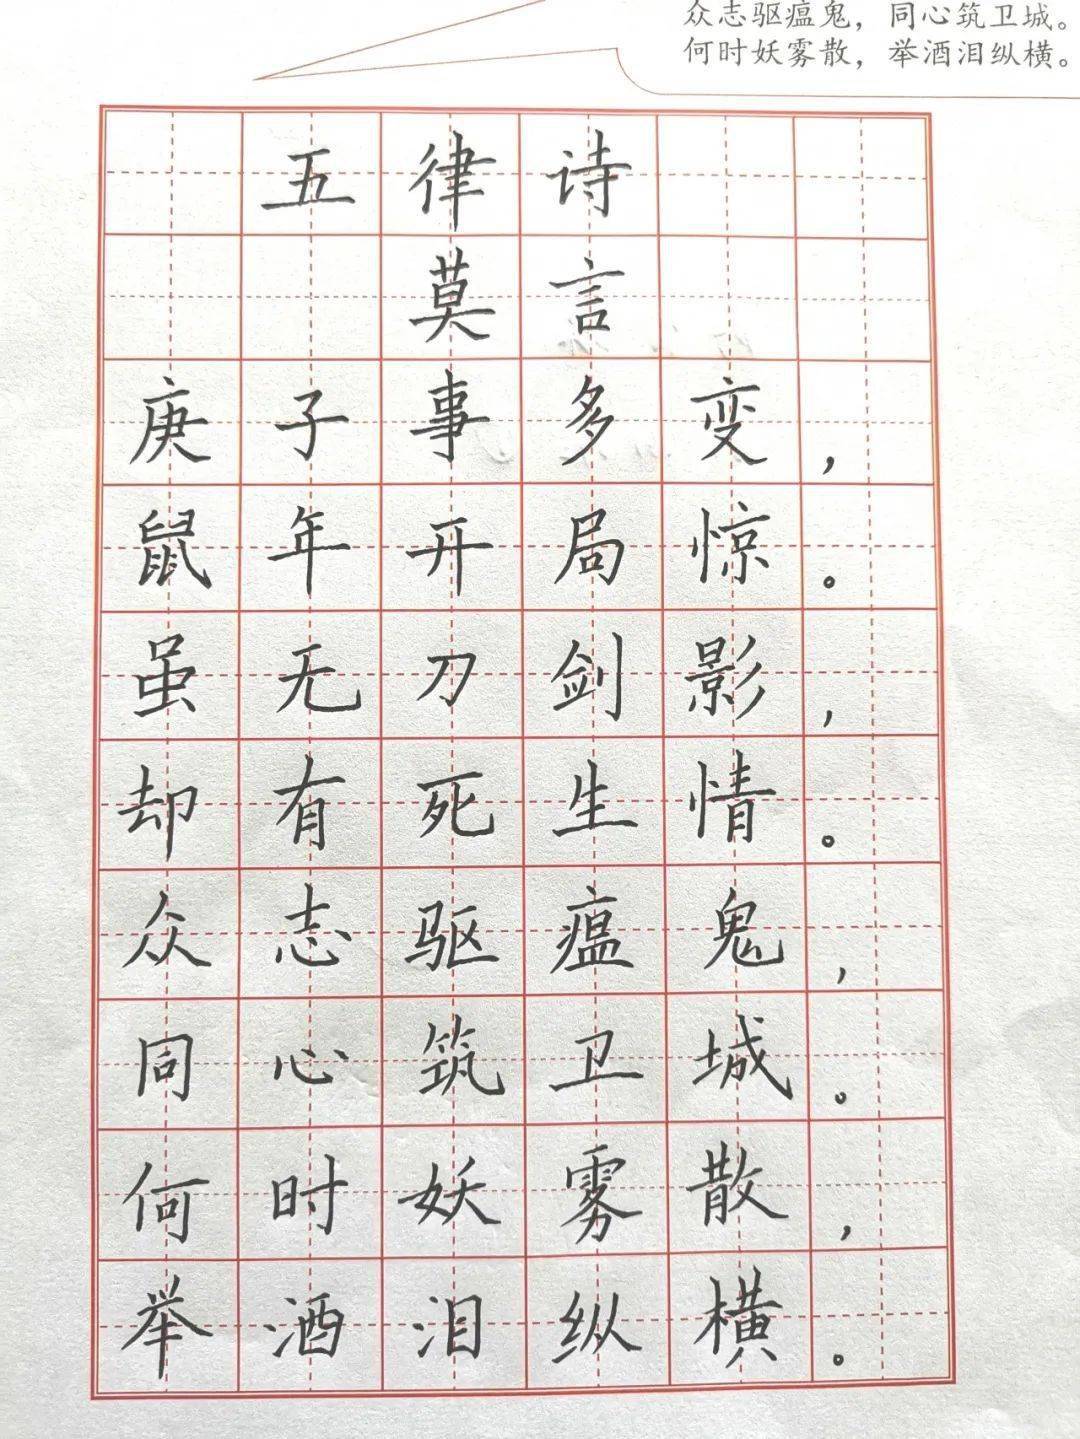 众志驱瘟鬼，同心筑卫城。
何时妖雾散，举酒泪纵横。
五律诗
莫言
庚子事多变，
鼠年开局惊。
虽无刀剑影，
却有死生情。
众志驱瘟鬼，
同心筑卫城。
何时妖雾散，
举酒泪纵横。